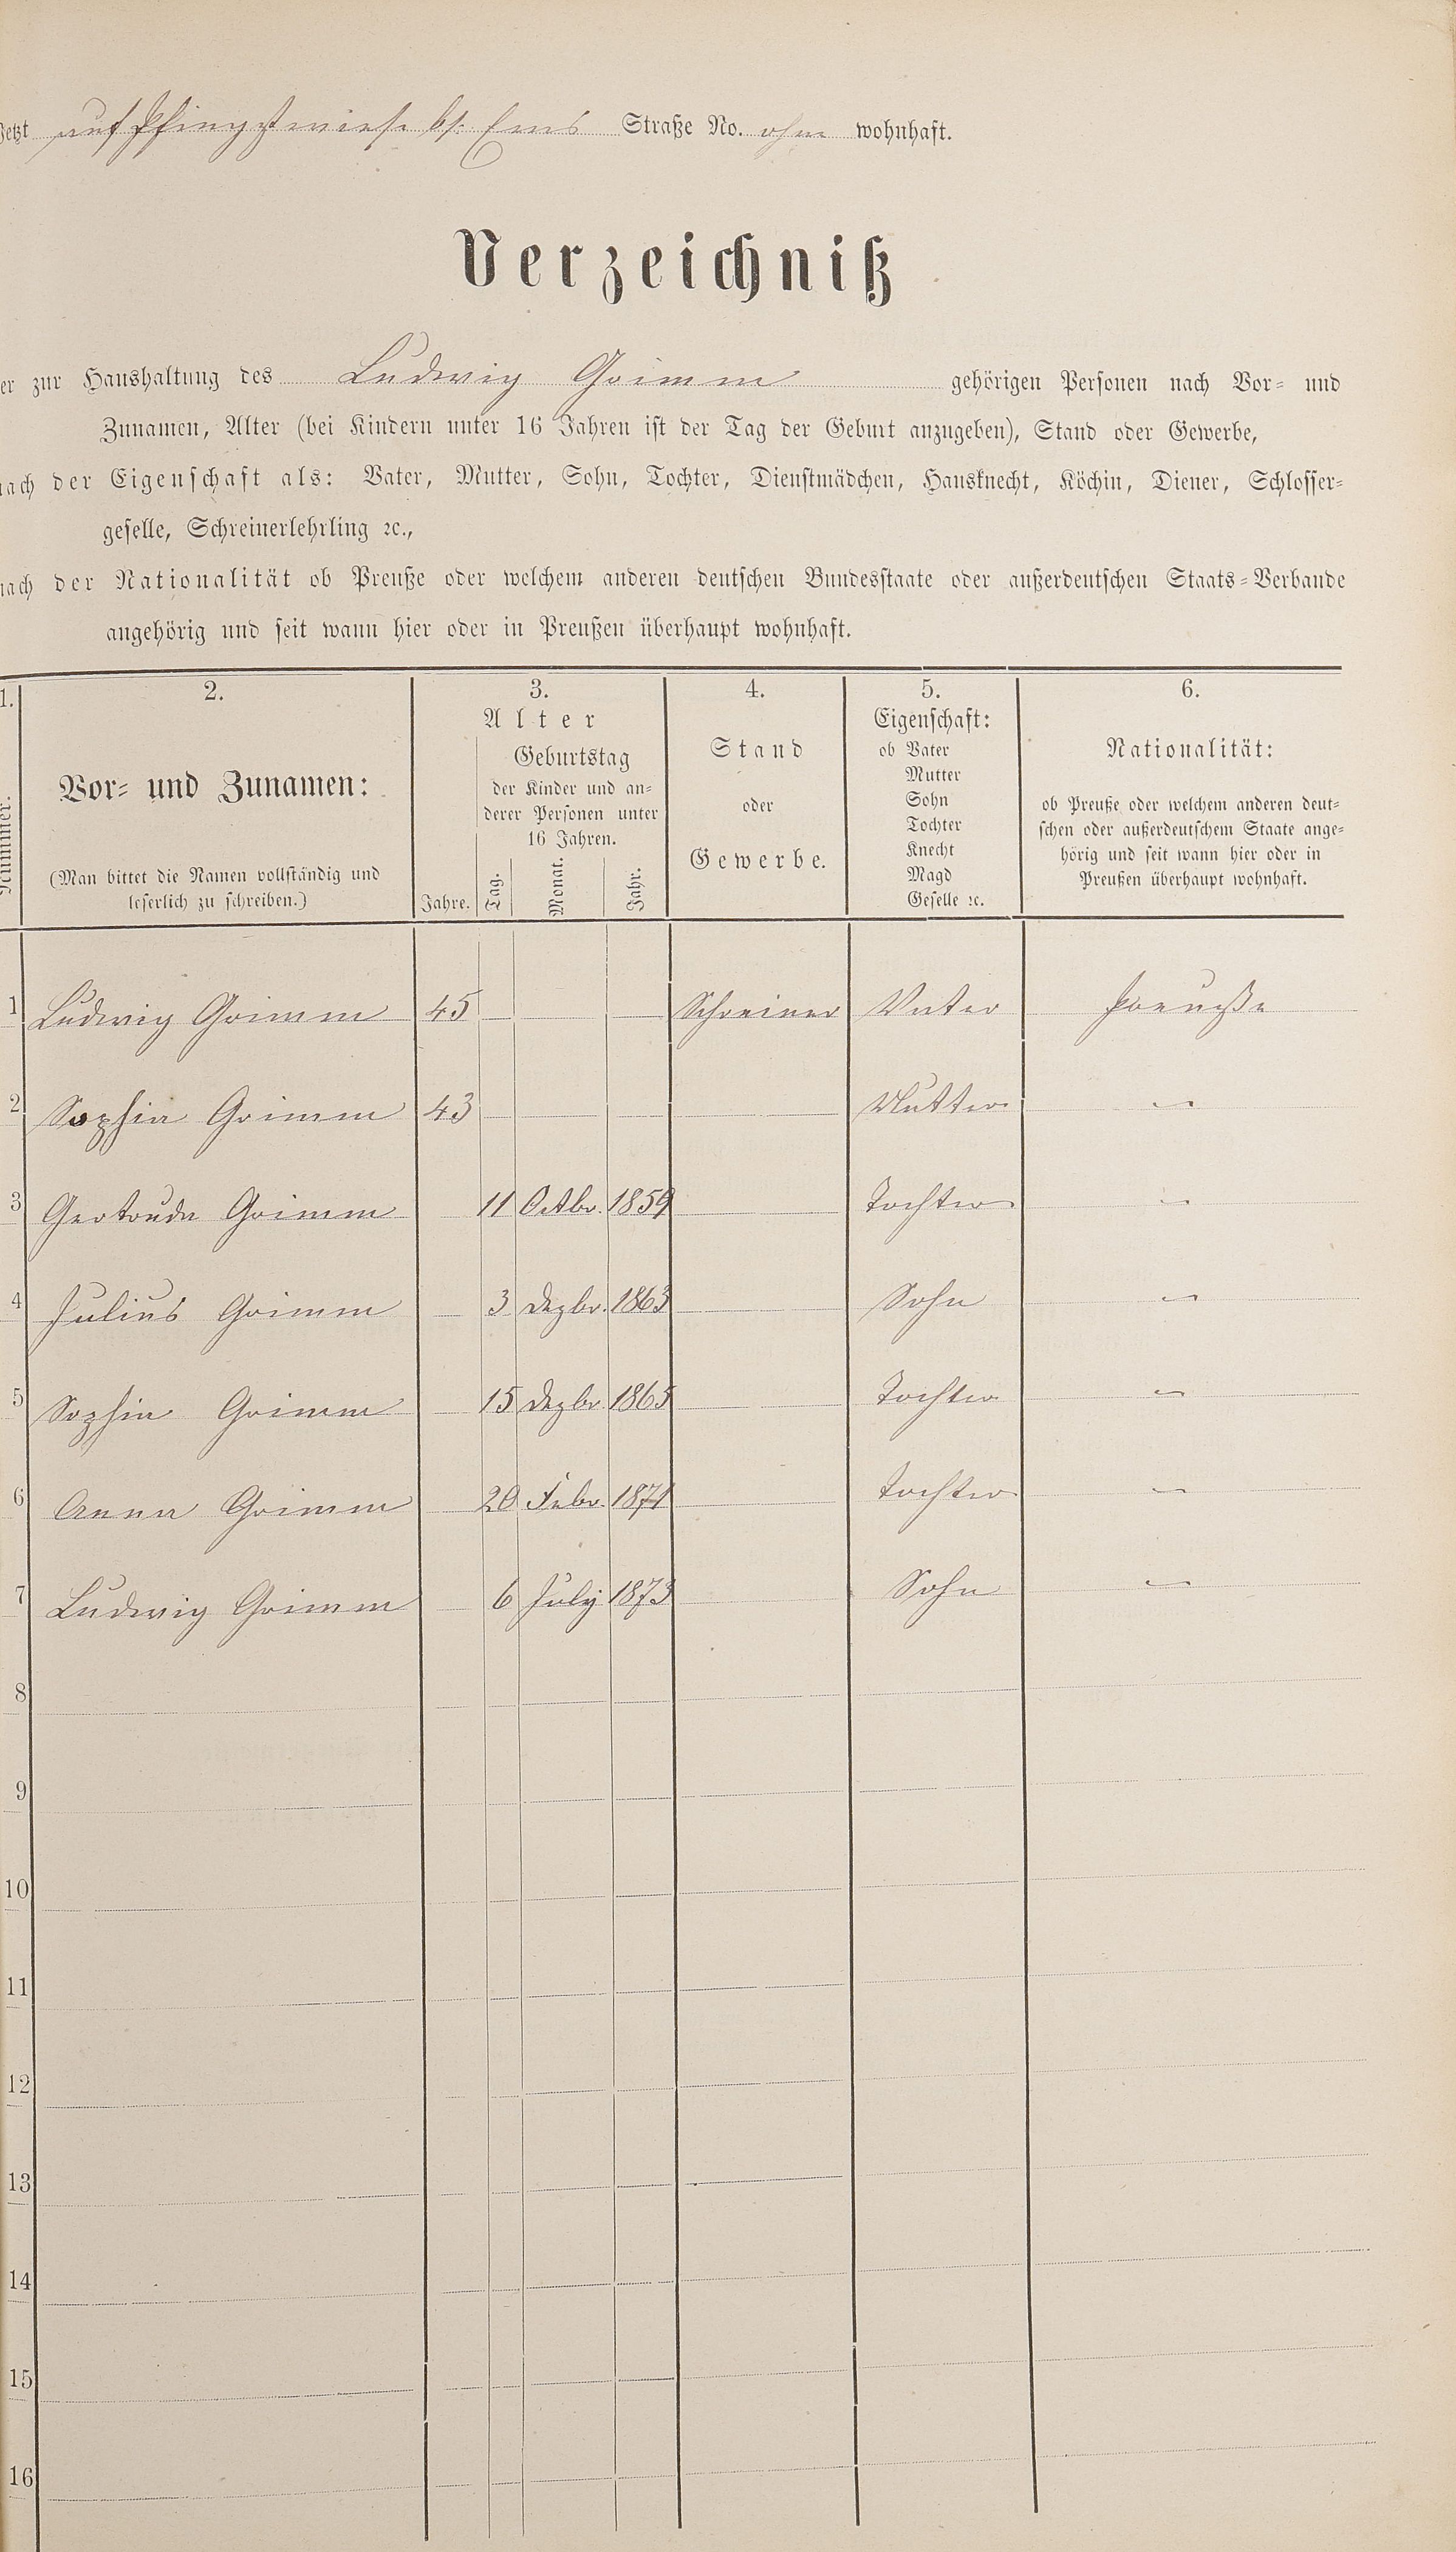 Jetzt auf Pfingstwiese bf. Ems Straße No. ohne wohnhaft.
Verzeichniß
er zur Haushaltung des Ludwig Grimm gehörigen Personen nach Vor- und
Zunamen, Alter (bei Kindern unter 16 Jahren ist der Tag der Geburt anzugeben), Stand oder Gewerbe,
nach der Eigenschaft als: Vater, Mutter, Sohn, Tochter, Dienstmädchen, Hausknecht, Köchin, Diener, Schlosser-
geselle, Schreinerlehrling ꝛc.,
nach der Nationalität ob Preuße oder welchem anderen deutschen Bundesstaate oder außerdeutschen Staats-Verbande
angehörig und seit wann hier oder in Preußen überhaupt wohnhaft.
1. 2. 3. 4. 5. 6.
Nummer.
Vor- und Zunamen:
(Man bittet die Namen vollständig und
leserlich zu schreiben.)
Alter
Jahre.
Geburtstag
der Kinder und an-
derer Personen unter
16 Jahren.
Tag. Monat. Jahr.
Stand
oder
Gewerbe.
Eigenschaft:
ob Vater
Mutter
Sohn
Tochter
Knecht
Magd
Geselle ꝛc.
Nationalität:
ob Preuße oder welchem anderen deut-
schen oder außerdeutschem Staate ange-
hörig und seit wann hier oder in
Preußen überhaupt wohnhaft.
1 Ludwig Grimm 45 Schreiner Vater Preuße
2 Sophia Grimm 43 Mutter "
3 Gertruda Grimm 11 Octbr. 1859 Tochter "
4 Julius Grimm 3 Dezbr. 1863 Sohn "
5 Sophia Grimm 15 Dezbr. 1865 Tochter "
6 Anna Grimm 20 Febr. 1871 Tochter "
7 Ludwig Grimm 6 July 1873 Sohn "
8
9
10
11
12
13
14
15
16